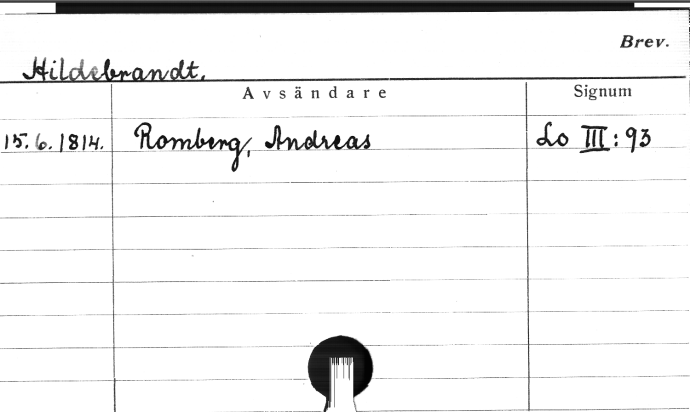 Brev.
Hildebrandt.
Avsändare Signum
15.6.1814. Romberg, Andreas Lo III:93